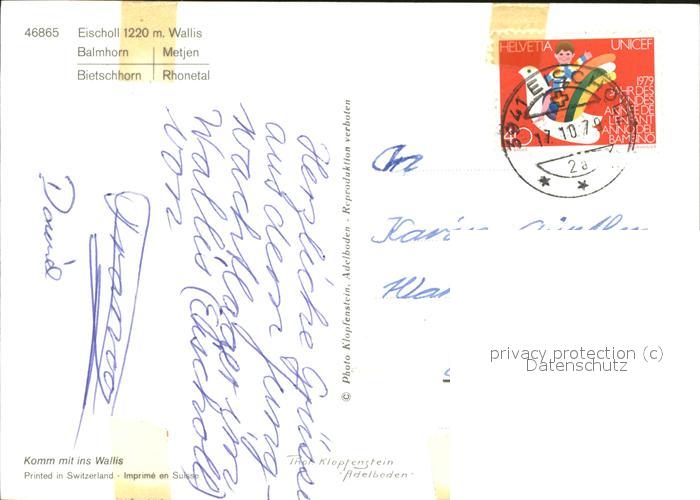 46865 Eischoll 1220 m. Wallis
Balmhorn Metjen
Bietschhorn Rhonetal
Herzliche Grüsse
aus dem Jung-
wachtlager im
Wallis (Eischoll)
von
David
© Photo Klopfenstein, Adelboden - Reproduktion verboten
HELVETIA UNICEF
1979
JAHR DES
KINDES
ANNÉE DE
L'ENFANT
ANNO DEL
BAMBINO
40
3941 EISCHOLL
17.10.79
2a
An
Karin
privacy protection (c)
Datenschutz
Komm mit ins Wallis
Printed in Switzerland - Imprimé en Suisse
Photo Klopfenstein
- Adelboden -